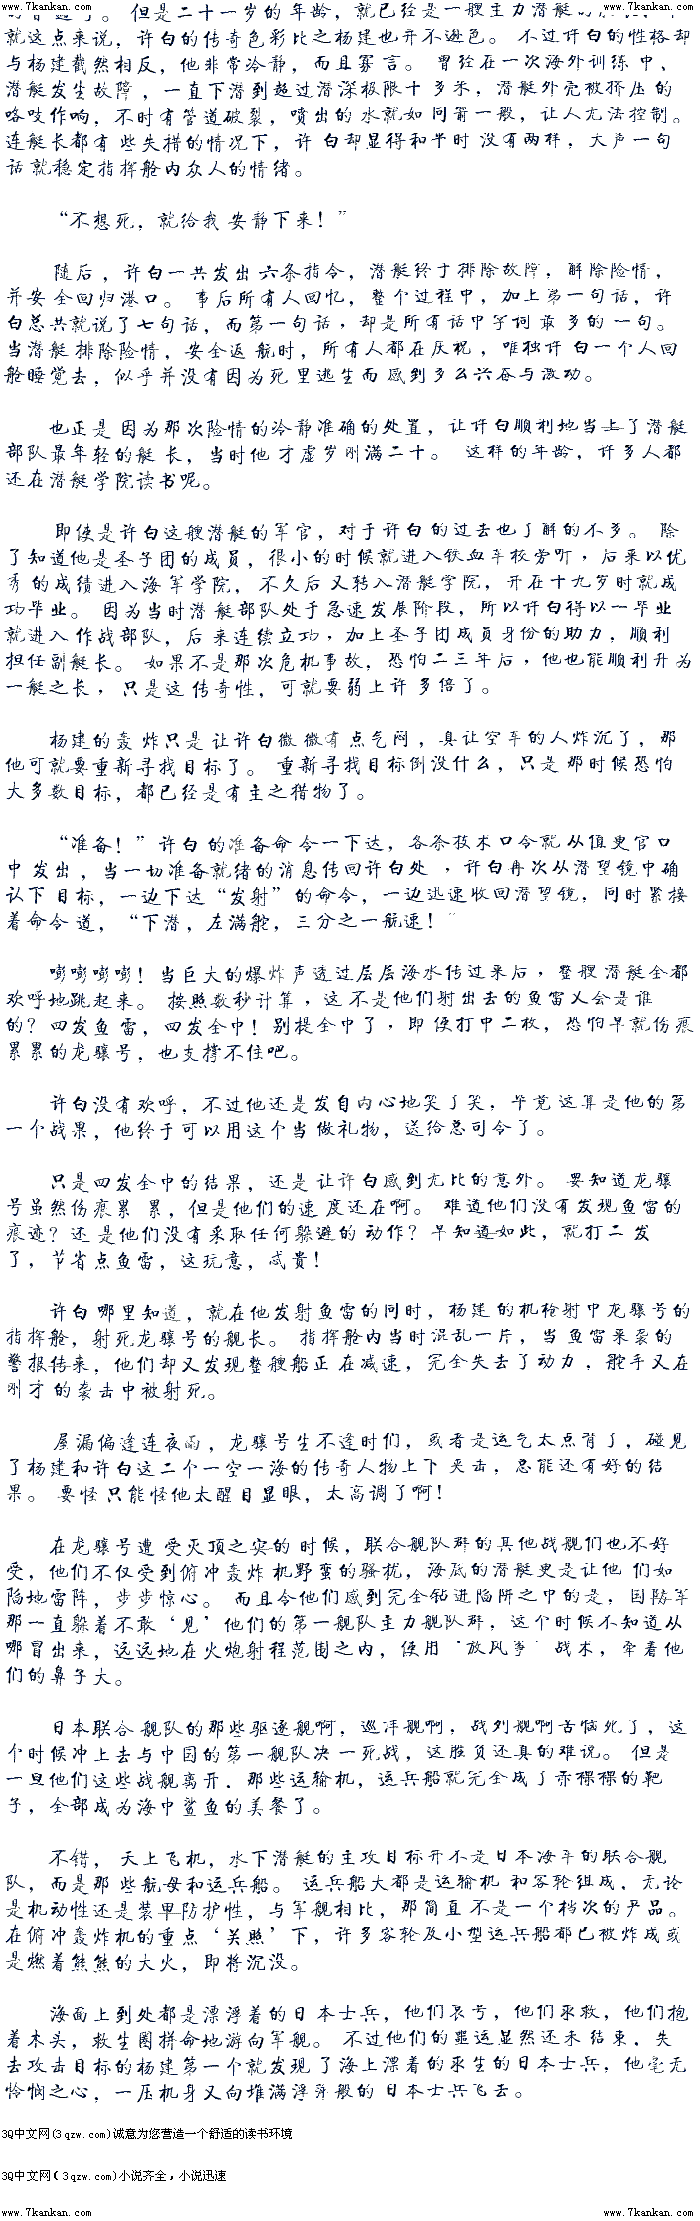 www.7kankan.com www.7kankan.com
但是二十一岁的年龄，就已经是一艘主力潜艇的
就这点来说，许白的传奇色彩比之杨建也并不逊色。 不过许白的性格却
与杨建截然相反，他非常冷静，而且寡言。 曾经在一次海外训练中，
潜艇发生故障，一直下潜到超过潜深极限十多米，潜艇外壳被挤压的
咯吱作响，不时有管道破裂，喷出的水就如同箭一般，让人无法控制。
连艇长都有些失措的情况下，许白却显得和平时没有两样，大声一句
话就稳定指挥舱内众人的情绪。
“不想死，就给我安静下来！”
随后，许白一共发出六条指令，潜艇终于排除故障，解除险情，
并安全回归港口。 事后所有人回忆，整个过程中，加上第一句话，许
白总共就说了七句话，而第一句话，却是所有话中字词最多的一句。
当潜艇排除险情，安全返航时，所有人都在庆祝，唯独许白一个人回
舱睡觉去，似乎并没有因为死里逃生而感到多么兴奋与激动。
也正是因为那次险情的冷静准确的处置，让许白顺利地当上了潜艇
部队最年轻的艇长，当时他才虚岁刚满二十。 这样的年龄，许多人都
还在潜艇学院读书呢。
即使是许白这艘潜艇的军官，对于许白的过去也了解的不多。 除
了知道他是圣子团的成员，很小的时候就进入铁血军校旁听，后来以优
秀的成绩进入海军学院， 不久后又转入潜艇学院，并在十九岁时就成
功毕业。 因为当时潜艇部队处于急速发展阶段，所以许白得以一毕业
就进入作战部队，后来连续立功，加上圣子团成员身份的助力，顺利
担任副艇长。 如果不是那次危机事故，恐怕二三年后，他也能顺利升为
一艇之长，只是这传奇性，可就要弱上许多倍了。
杨建的轰炸只是让许白微微有点气闷，真让空军的人炸沉了，那
他可就要重新寻找目标了。 重新寻找目标倒没什么，只是那时候恐怕
大多数目标，都已经是有主之猎物了。
“准备！”许白的准备命令一下达，各条技术口令就从值更官口
中发出，当一切准备就绪的消息传回许白处 ，许白再次从潜望镜中确
认下目标，一边下达“发射”的命令，一边迅速收回潜望镜，同时紧接
着命令道，“下潜，左满舵，三分之一航速！”
嘭嘭嘭嘭！当巨大的爆炸声透过层层海水传过来后，整艘潜艇全都
欢呼地跳起来。 按照数秒计算，这不是他们射出去的鱼雷又会是谁
的？四发鱼雷，四发全中！别提全中了，即便打中二枚，恐怕早就伤痕
累累的龙骧号，也支撑不住吧。
许白没有欢呼，不过他还是发自内心地笑了笑，毕竟这算是他的第
一个战果，他终于可以用这个当做礼物，送给总司令了。
只是四发全中的结果，还是让许白感到无比的意外。 要知道龙骧
号虽然伤痕累累，但是他们的速度还在啊。 难道他们没有发现鱼雷的
痕迹？还是他们没有采取任何躲避的动作？早知道如此，就打二发
了，节省点鱼雷，这玩意，咸贵！
许白哪里知道，就在他发射鱼雷的同时，杨建的机枪射中龙骧号的
指挥舱，射死龙骧号的舰长。 指挥舱内当时混乱一片，当鱼雷来袭的
警报传来，他们却又发现整艘船正在减速，完全失去了动力，舵手又在
刚才的袭击中被射死。
屋漏偏逢连夜雨，龙骧号生不逢时们，或者是运气太点背了，碰见
了杨建和许白这二个一空一海的传奇人物上下夹击，怎能还有好的结
果。 要怪只能怪他太醒目显眼，太高调了啊！
在龙骧号遭受灭顶之灾的时候，联合舰队群的其他战舰们也不好
受，他们不仅受到俯冲轰炸机野蛮的骚扰，海底的潜艇更是让他们如
陷地雷阵，步步惊心。 而且令他们感到完全钻进陷阱之中的是，国防军
那一直躲着不敢‘见’他们的第一舰队主力舰队群，这个时候不知道从
哪冒出来，远远地在火炮射程范围之内，使用‘放风筝’战术，牵着他
们的鼻子大。
日本联合舰队的那些驱逐舰啊，巡洋舰啊，战列舰啊苦恼死了，这
个时候冲上去与中国的第一舰队决一死战，这胜负还真的难说。 但是
一旦他们这些战舰离开，那些运输机，运兵船就完全成了赤裸裸的靶
子，全部成为海中鲨鱼的美餐了。
不错， 天上飞机，水下潜艇的主攻目标并不是日本海军的联合舰
队，而是那些航母和运兵船。 运兵船大都是运输机和客轮组成，无论
是机动性还是装甲防护性，与军舰相比，那简直不是一个档次的产品。
在俯冲轰炸机的重点‘关照’下，许多客轮及小型运兵船都已被炸成或
是燃着熊熊的大火，即将沉没。
海面上到处都是漂浮着的日本士兵，他们哀号，他们求救，他们抱
着木头，救生圈拼命地游向军舰。 不过他们的噩运显然还未结束，失
去攻击目标的杨建第一个就发现了海上漂着的求生的日本士兵，他毫无
怜悯之心，一压机身又向堆满浮萍般的日本士兵飞去。
3Q中文网(3qzw.com)诚意为您营造一个舒适的读书环境
3Q中文网(3qzw.com)小说齐全，小说迅速
www.7kankan.com www.7kankan.com